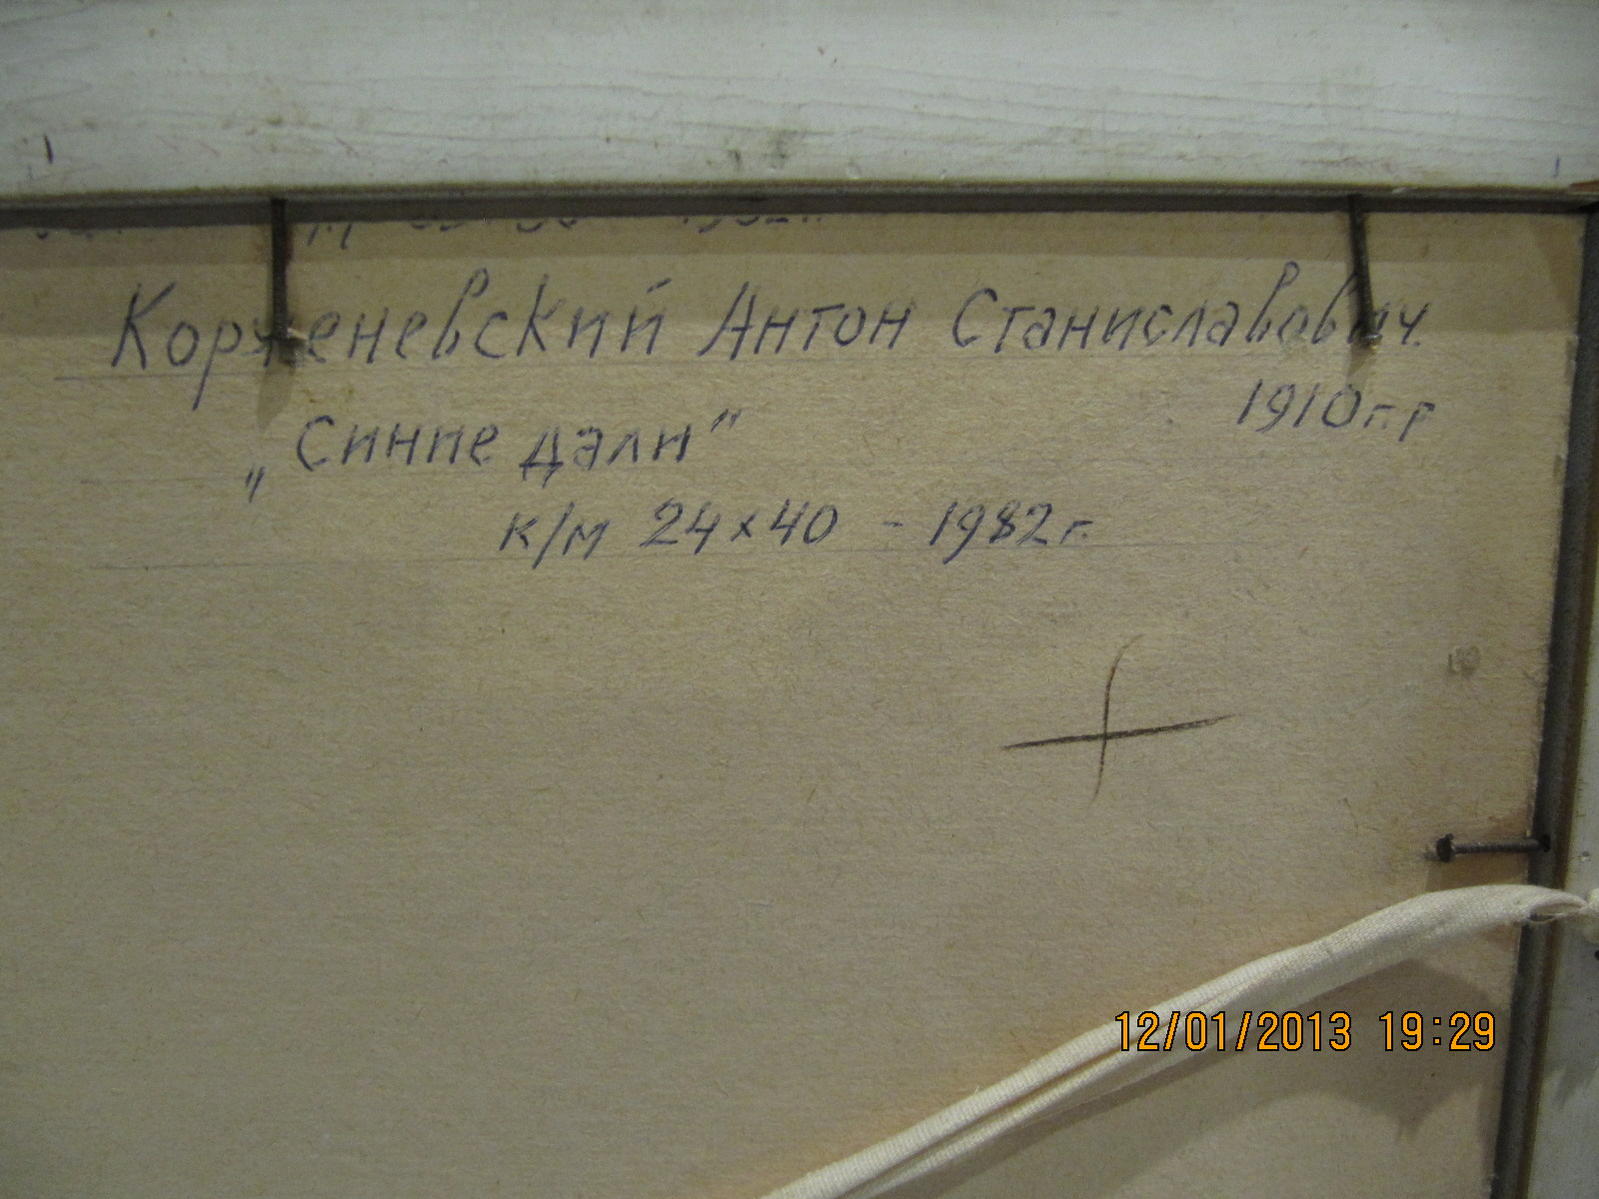 1982г.
Корженевский Антон Станиславович.
1910г.р
„Синие дали"
к/м 24x40 - 1982г.
12/01/2013 19:29